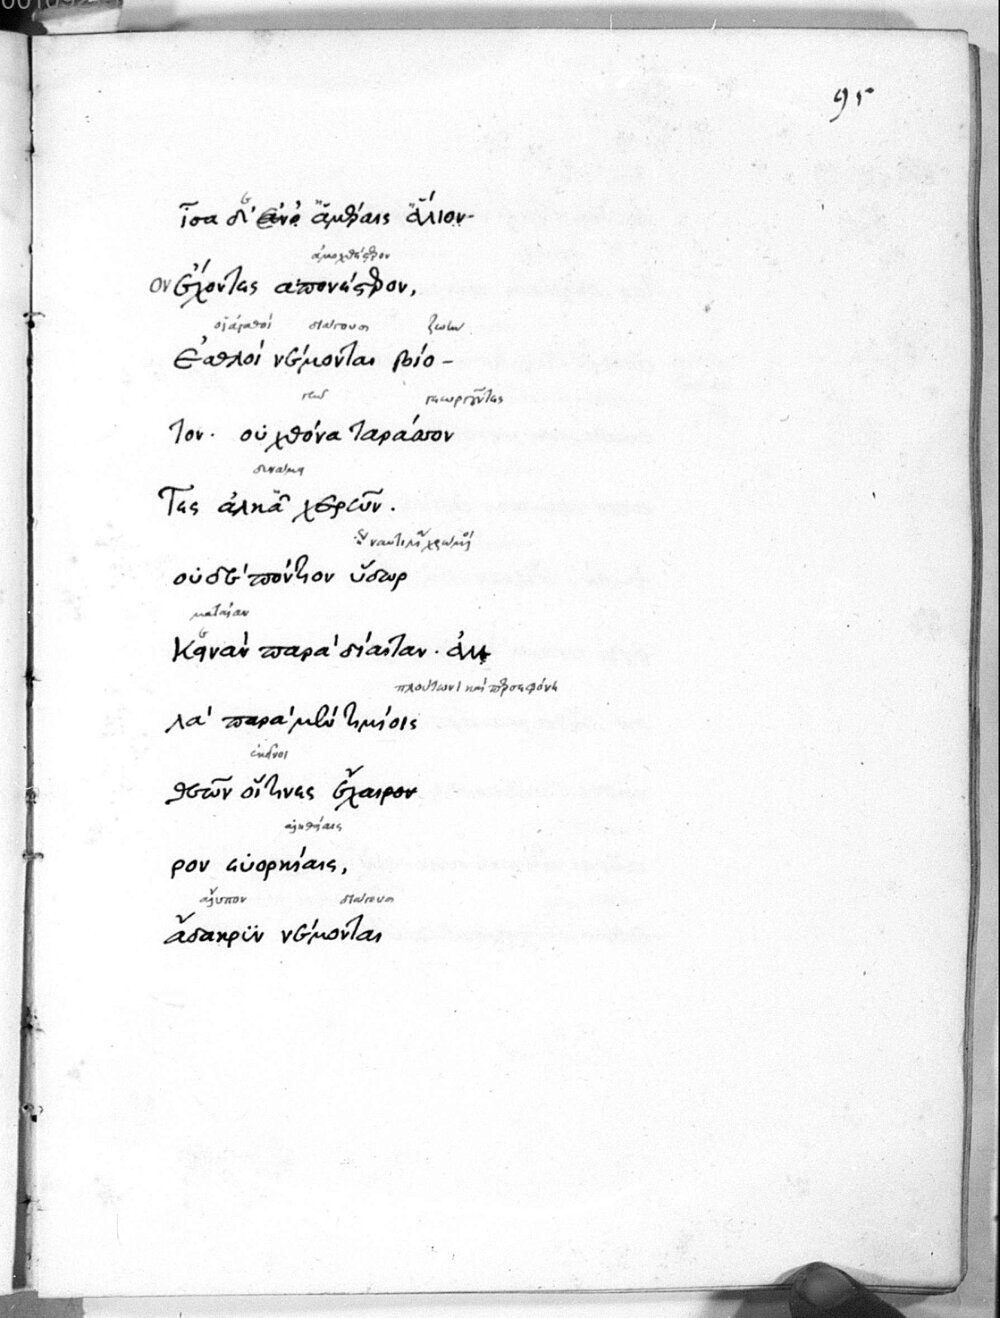 ἶσα δ' ἐν ἁμέραις ἅλιον
ἀμοχθέστερον
ον ἔχοντες ἀπονέστερον,
οἱ ἀγαθοὶ διάγουσι ζωὴν
ἐσθλοὶ νέμονται βίο-
γεωργοῦντες
τον· οὐ χθόνα ταράσσον
δυνάμει
τες ἀλκᾷ χερῶν.
ναυτικῇ
οὐδὲ πόντιον ὕδωρ
ματαίαν
κεινὰν παρὰ δίαιταν· ἀλ
πλούτωνι καὶ περσεφόνη
λὰ παρὰ μὲν τιμίοις
ἐκεῖνοι
θεῶν οἵτινες ἔχαιρον
ἀληθείαις
ρον εὐορκίαις,
ἄλυπον διάγουσι
ἄδακρυν νέμονται